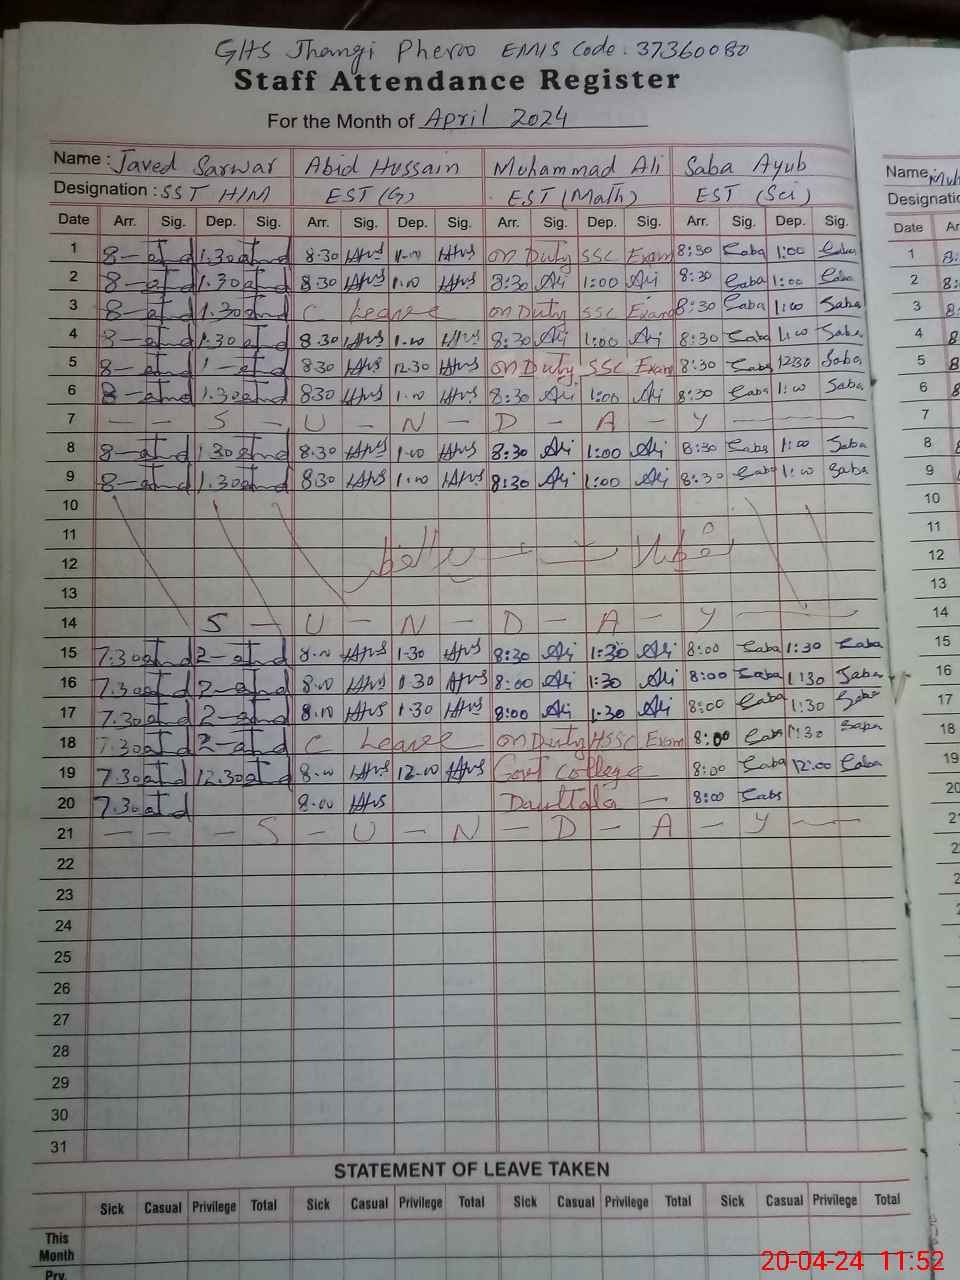 GHS Jhangi Pheroo EMIS Code: 37360080
Staff Attendance Register
For the Month of April 2024
Name : Javed Sarwar Abid Hussain Muhammad Ali Saba Ayub Name
Designation : SST H/M EST (G) EST (Math) EST (Sci) Designatio
Date Arr. Sig. Dep. Sig. Arr. Sig. Dep. Sig. Arr. Sig. Dep. Sig. Arr. Sig. Dep. Sig. Date Ar
1 8- 1.30 8.30 1.00 on Duty SSC Exam 8:30 Saba 1:00 Saba 1
2 8- 1.30 8.30 1.00 8:30 Ali 1:00 Ali 8:30 Saba 1:00 Saba 2
3 8- 1.30 C Leave on Duty SSC Exam 8:30 Saba 1:00 Saba 3
4 8- 1.30 8.30 1.00 8:30 Ali 1:00 Ali 8:30 Saba 1:00 Saba 4
5 8- 1- 8.30 12.30 on Duty SSC Exam 8:30 Saba 12:30 Saba 5
6 8- 1.30 8.30 1.00 8:30 Ali 1:00 Ali 8:30 Saba 1:00 Saba 6
7 - - S - U - N - D - A - Y - 7
8 8- 1.30 8.30 1.00 8:30 Ali 1:00 Ali 8:30 Saba 1:00 Saba 8
9 8- 1.30 8.30 1.00 8:30 Ali 1:00 Ali 8:30 Saba 1:00 Saba 9
10 10
11 11
12 12
13 13
14 S - U - N - D - A - Y - 14
15 7.30 2- 8.00 1.30 8:30 Ali 1:30 Ali 8:00 Saba 1:30 Saba 15
16 7.30 2- 8.00 1.30 8:00 Ali 1:30 Ali 8:00 Saba 1:30 Saba 16
17 7.30 2- 8.00 1.30 8:00 Ali 1:30 Ali 8:00 Saba 1:30 Saba 17
18 7.30 2- C Leave on Duty HSSC Exam 8:00 Saba 1:30 Saba 18
19 7.30 12.30 8.00 12.00 Govt College 8:00 Saba 12:00 Saba 19
20 7.30 8.00 Daultala - 8:00 Saba 20
21 - - - S - U - N - D - A - Y - 21
22
23
24
25
26
27
28
29
30
31
STATEMENT OF LEAVE TAKEN
Sick Casual Privilege Total Sick Casual Privilege Total Sick Casual Privilege Total Sick Casual Privilege Total
This
Month
Prv.
20-04-24 11:52